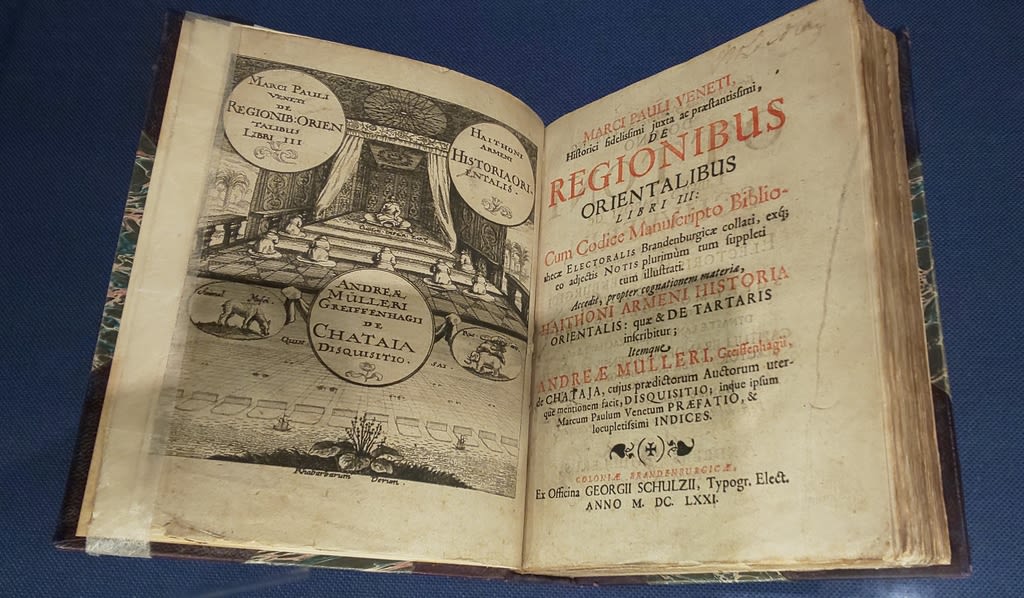 MARCI PAULI
VENETI
DE
REGIONIB: ORIEN
TALIBUS
LIBRI III
HAITHONI
ARMENI
HISTORIA ORI-
ENTALIS.
ANDREÆ
MÜLLERI
GREIFFENHAGII
DE
CHATAIA
DISQUISITIO.
Animal
QUIN
SAI
Rhabarbarum Verum.
MARCI PAULI VENETI,
Historici fidelissimi juxta ac præstantissimi,
DE
REGIONIBUS
ORIENTALIBUS
LIBRI III:
Cum Codice Manuscripto Biblio-
thecæ ELECTORALIS Brandenburgicæ collati, exq;
eo adjectis NOTIS plurimùm tum suppleti
tum illustrati.
Accedit, propter cognationem materiæ,
HAITHONI ARMENI HISTORIA
ORIENTALIS: quæ & DE TARTARIS
inscribitur;
Itemque
ANDREÆ MULLERI, Greiffenhagii,
de CHATAJA, cujus prædictorum Auctorum uter-
que mentionem facit, DISQUISITIO; inque ipsum
Marcum Paulum Venetum PRÆFATIO, &
locupletissimi INDICES.
COLONIÆ BRANDENBURGICÆ,
Ex Officina GEORGII SCHULZII, Typogr. Elect.
ANNO M. DC. LXXI.